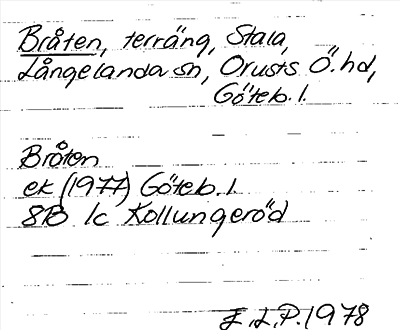 Bråten, terräng, Stala,
Långelanda sn, Orusts Ö. hd,
Göteb. l.
Bråten
ek (1977) Göteb. l.
8B 1c Kollungeröd
E.L.P. 1978